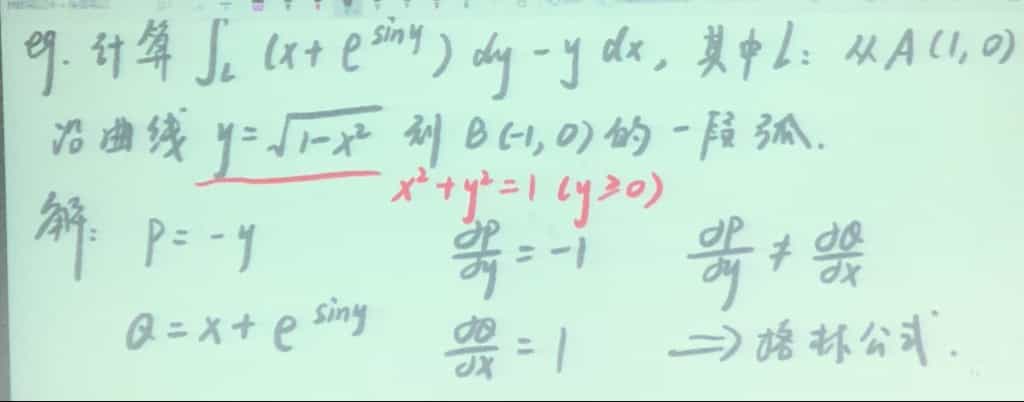 eg. 计算 ∫_L (x + e^{siny}) dy - y dx, 其中L: 从A(1, 0)
沿曲线 y = √(1-x²) 到 B(-1, 0) 的一段弧.
x² + y² = 1 (y ≥ 0)
解: P = -y ∂P/∂y = -1 ∂P/∂y ≠ ∂Q/∂x
Q = x + e^{siny} ∂Q/∂x = 1 ⇒ 格林公式.